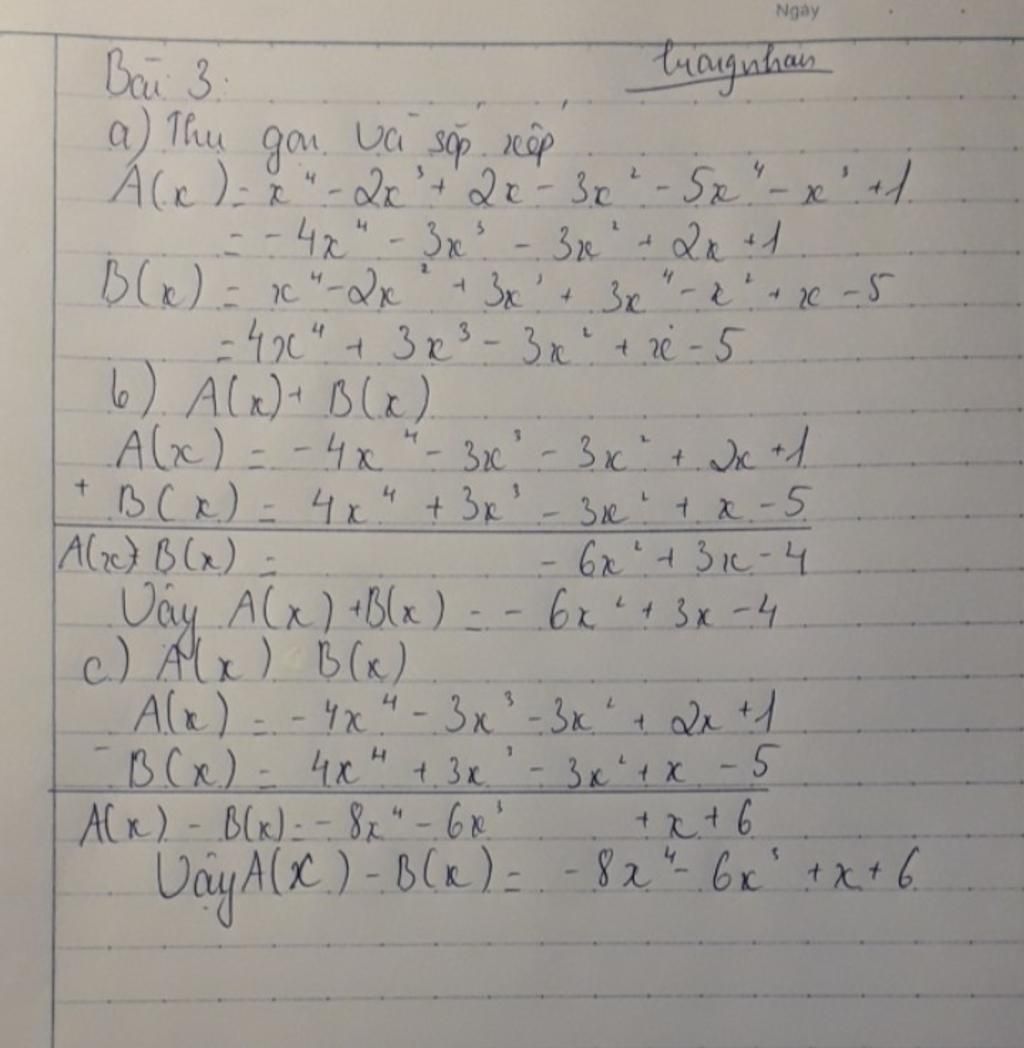 Ngày
trangnhan
Bài 3:
a) Thu gọn và sắp xếp
A(x) = x⁴ - 2x³ + 2x - 3x² - 5x⁴ - x³ + 1
= - 4x⁴ - 3x³ - 3x² + 2x + 1
B(x) = x⁴ - 2x² + 3x³ + 3x⁴ - x² + x - 5
= 4x⁴ + 3x³ - 3x² + x - 5
b) A(x) + B(x)
A(x) = - 4x⁴ - 3x³ - 3x² + 2x + 1
+ B(x) = 4x⁴ + 3x³ - 3x² + x - 5
A(x) + B(x) = - 6x² + 3x - 4
Vậy A(x) + B(x) = - 6x² + 3x - 4
c) A(x) B(x)
A(x) = - 4x⁴ - 3x³ - 3x² + 2x + 1
- B(x) = 4x⁴ + 3x³ - 3x² + x - 5
A(x) - B(x) = - 8x⁴ - 6x³ + x + 6
Vậy A(x) - B(x) = - 8x⁴ - 6x³ + x + 6